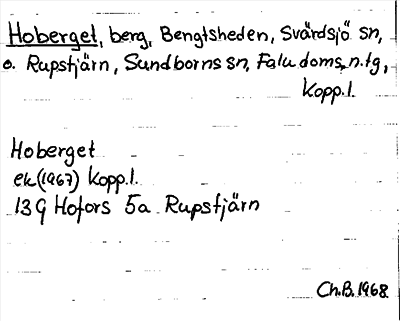 Hoberget, berg, Bengtsheden, Svärdsjö sn,
o. Rupstjärn, Sundborns sn, Falu doms. n. tg,
Kopp. l.
Hoberget
ek (1967) Kopp. l.
13 G Hofors 5a Rupstjärn
Ch. B. 1968